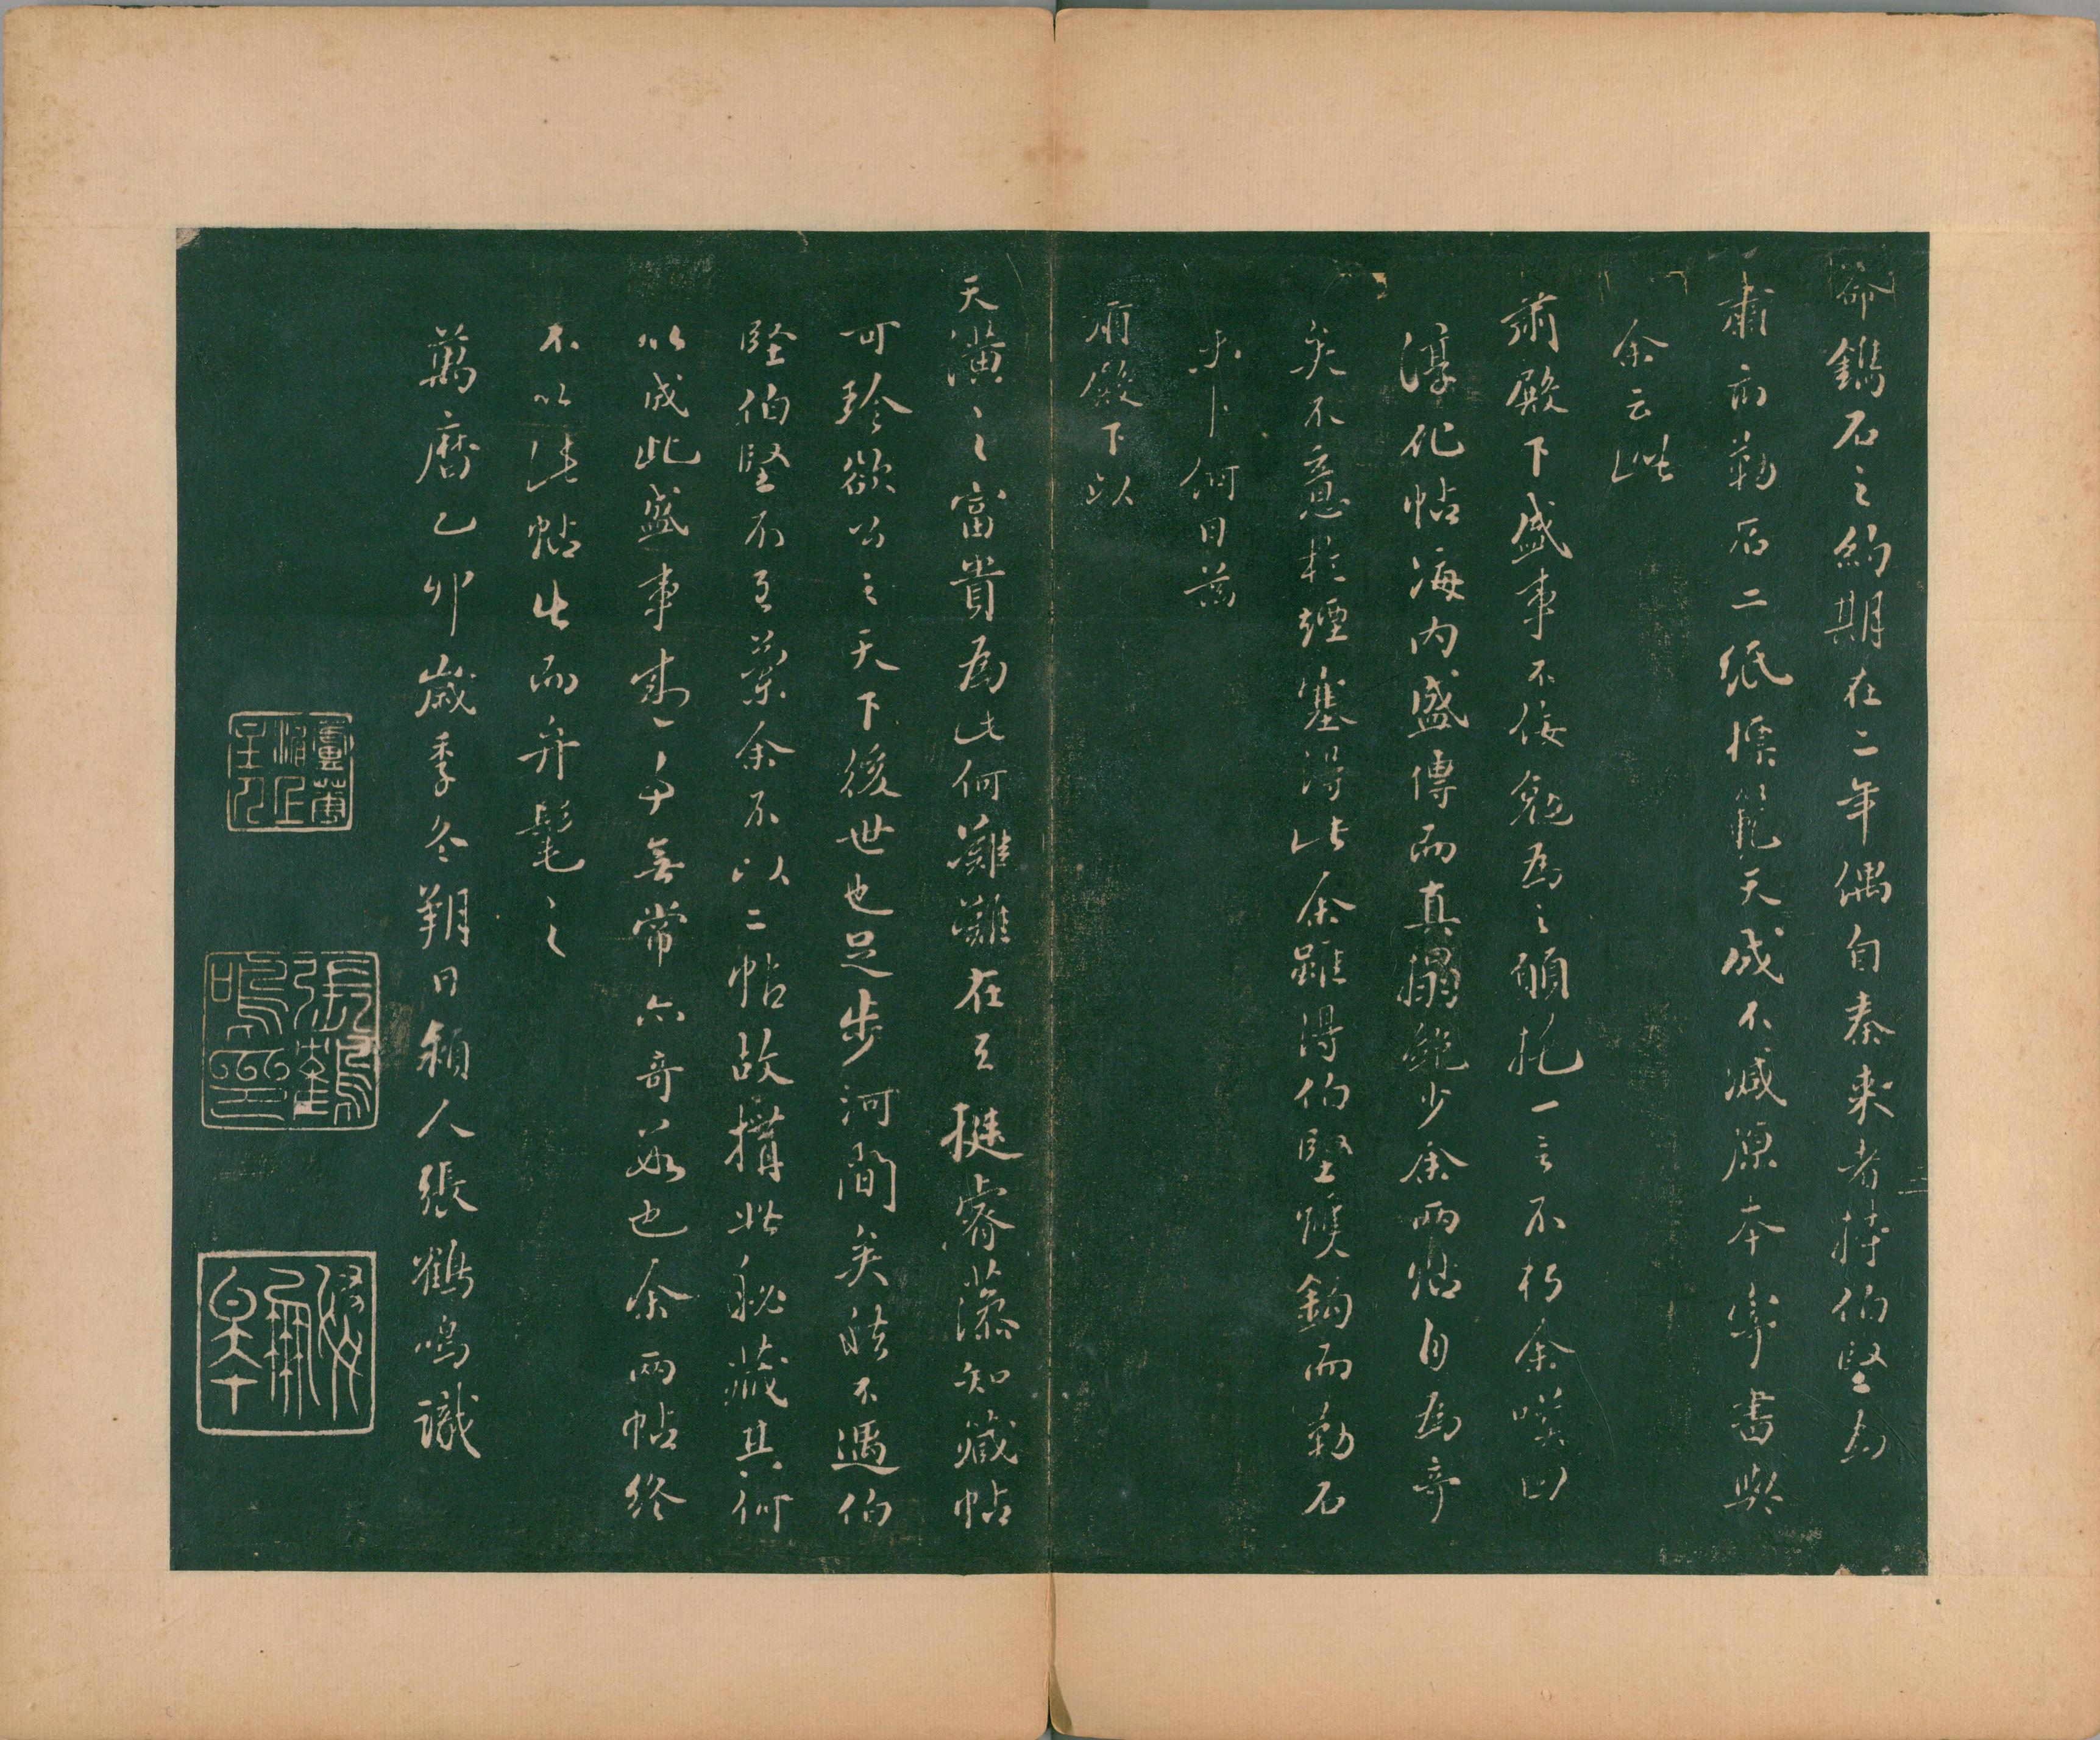 命鐫石之約期在二年偶自秦来者持伯堅為
肅府勒石二紙標範天成不減原本寧書與
余云此
肅殿下盛事不佞勉為之願托一言不朽余嘆曰
淳化帖海内盛傳而真搨絶少余兩帖自為奇
矣不意於煙塞得此余雖得伯堅雙鈎而勒石
未卜何日茲
肅殿下以
天潢之富貴為此何難難在天挺睿藻知藏帖
可珍欲公之天下後世也足步河間矣然不遇伯
堅伯堅不至蘭余不以二帖故搆此秘藏其何
以成此盛事乘一千無常亦奇數也余兩帖終
不以法帖生而弁髦之
萬曆乙卯歲季冬朔日潁人張鶴鳴識
張鶴鳴印